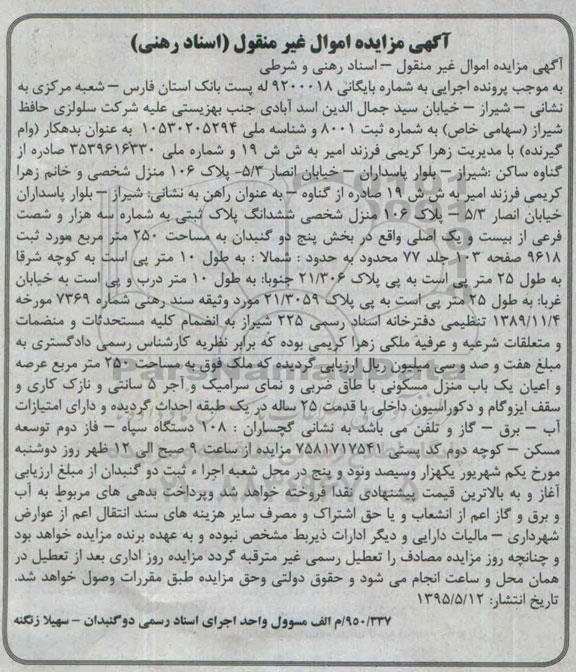 آگهی مزایده اموال غیر منقول (اسناد رهنی)
آگهی مزایده اموال غیر منقول – اسناد رهنی و شرطی
به موجب پرونده اجرایی به شماره بایگانی ۹۲۰۰۰۱۸ له پست بانک استان فارس – شعبه مرکزی به
نشانی – شیراز – خیابان سید جمال الدین اسد آبادی جنب بهزیستی علیه شرکت سلولزی حافظ
شیراز (سهامی خاص) به شماره ثبت ۸۰۰۱ و شناسه ملی ۱۰۵۳۰۲۰۵۲۹۴ به عنوان بدهکار (وام
گیرنده) با مدیریت زهرا کریمی فرزند امیر به ش ش ۱۹ و شماره ملی ۳۵۳۹۶۱۶۳۳۰ صادره از
گناوه ساکن :شیراز – بلوار پاسداران – خیابان انصار ۵/۳- پلاک ۱۰۶ منزل شخصی و خانم زهرا
کریمی فرزند امیر به ش ش ۱۹ صادره از گناوه – به عنوان راهن به نشانی: شیراز – بلوار پاسداران
خیابان انصار ۵/۳ – پلاک ۱۰۶ منزل شخصی ششدانگ پلاک ثبتی به شماره سه هزار و شصت
فرعی از بیست و یک اصلی واقع در بخش پنج دو گنبدان به مساحت ۲۵۰ متر مربع مورد ثبت
۹۶۱۸ صفحه ۱۰۳ جلد ۷۷ محدود به حدود : شمالا : به طول ۱۰ متر پی است به کوچه شرقا
به طول ۲۵ متر پی است به پی پلاک ۲۱/۳۰۶ جنوبا: به طول ۱۰ متر درب و پی است به خیابان
غربا: به طول ۲۵ متر پی است به پی پلاک ۲۱/۳۰۵۹ مورد وثیقه سند رهنی شماره ۷۳۶۹ مورخه
۱۳۸۹/۱۱/۴ تنظیمی دفترخانه اسناد رسمی ۲۲۵ شیراز به انضمام کلیه مستحدثات و منضمات
و متعلقات شرعیه و عرفیه ملکی زهرا کریمی بوده که برابر نظریه کارشناس رسمی دادگستری به
مبلغ هفت و صد و سی میلیون ریال ارزیابی گردیده که ملک فوق به مساحت ۲۵۰ متر مربع عرصه
و اعیان یک باب منزل مسکونی با طاق ضربی و نمای سرامیک و آجر ۵ سانتی و نازک کاری و
سقف ایزوگام و دکوراسیون داخلی با قدمت ۲۵ ساله در یک طبقه احداث گردیده و دارای امتیازات
آب – برق – گاز و تلفن می باشد به نشانی گچساران : ۱۰۸ دستگاه سپاه – فاز دوم توسعه
مسکن – کوچه دوم کد پستی ۷۵۸۱۷۱۷۵۴۱ مزایده از ساعت ۹ صبح الی ۱۲ ظهر روز دوشنبه
مورخ یکم شهریور یکهزار وسیصد ونود و پنج در محل شعبه اجرا ء ثبت دو گنبدان از مبلغ ارزیابی
آغاز و به بالاترین قیمت پیشنهادی نقداً فروخته خواهد شد وپرداخت بدهی های مربوط به آب
و برق و گاز اعم از انشعاب و یا حق اشتراک و مصرف سایر هزینه های سند انتقال اعم از عوارض
شهرداری – مالیات دارایی و دیگر ادارات ذیربط مشخص نبوده و به عهده برنده مزایده خواهد بود
و چنانچه روز مزایده مصادف با تعطیل رسمی غیر مترقبه گردد مزایده روز اداری بعد از تعطیل در
همان محل و ساعت انجام می شود و حقوق دولتی وحق مزایده طبق مقررات وصول خواهد شد.
تاریخ انتشار: ۱۳۹۵/۵/۱۲
۹۵۰/۳۳۷/م الف مسوول واحد اجرای اسناد رسمی دوگنبدان – سهیلا زنگنه